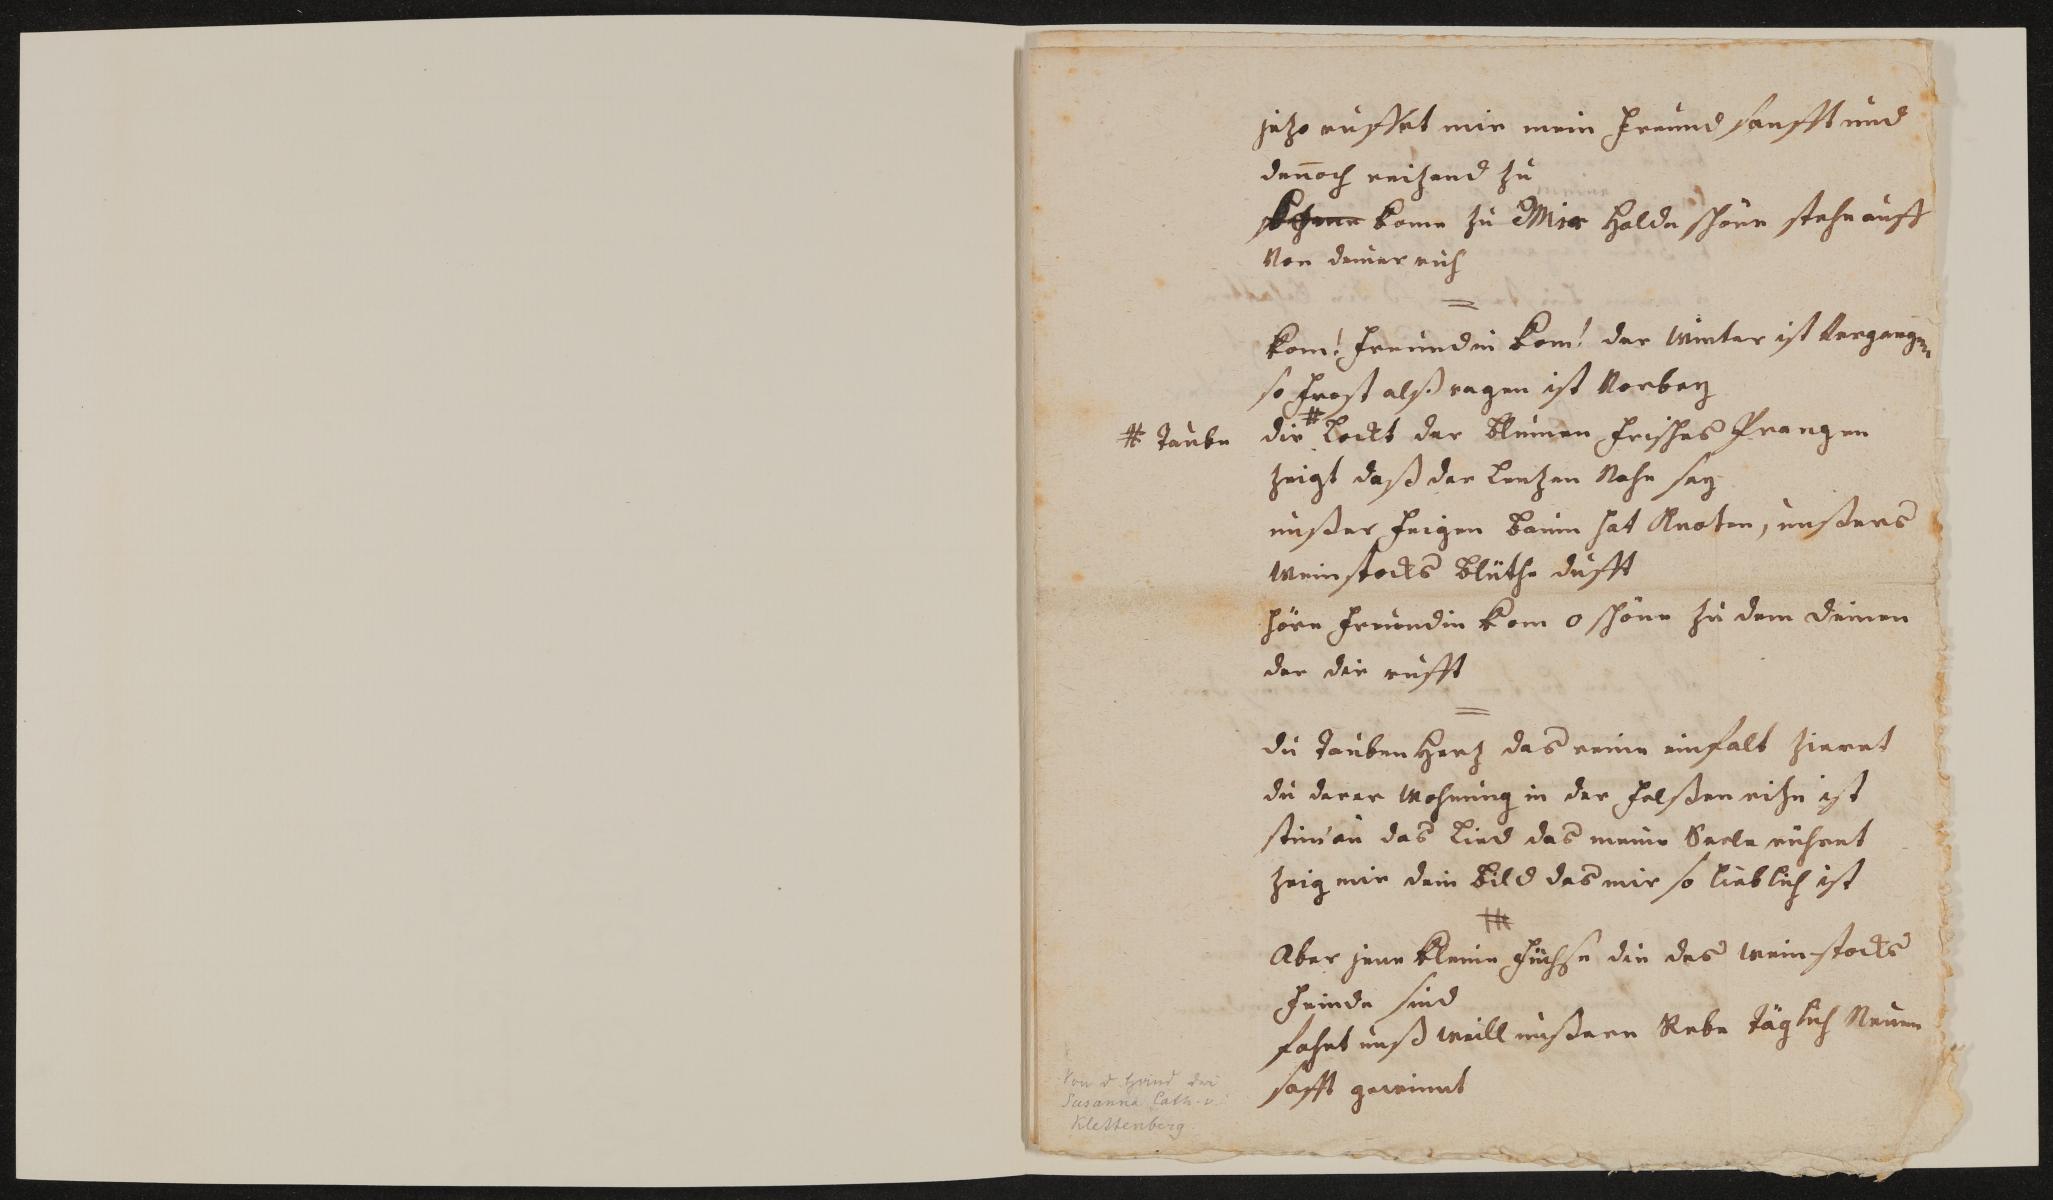 jetzo ruffet mir mein Freund sanfft und
den̄och reitzend zu
Schöne kome zu Mir holde schöne stehe auff
Von deiner ruh
kom! Freundin kom! der Winter ist Vergangen
so Frost alß regen ist Vorbey
# Taube
die # Lockt der Blumen Frisches Prangen
zeigt daß der Lentzen Nahe sey
unßer Feigen Baum hat Knoten, unßers
Weinstocks Blüthe dufft
höre Freundin kom o schöne zu dem deinen
der dir rufft
du Tauben Hertz das reine einfalt zieret
du derer Wohnung in der Felßen ritze ist
stim̄ an das Lied das meine Seele rühret
zeig mir dein Bild das mir so lieblich ist
Aber jene kleine Füchse die des Weinstocks
Feinde sind
fahet unß weill unßere Rebe täglich Neuen
safft gewinnt
Von d Hand der
Susanna Cath. v.
Klettenberg.